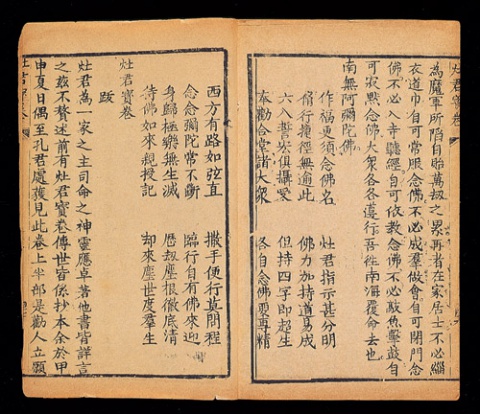 灶君寶卷
為魔軍所陷自貽萬劫之累再者在家居士不必緇
衣道巾自可常服念佛不必成羣做會自可閉門念
佛不必入寺聽經自可依教念佛不必敲魚擊鼓自
可寂默念佛大衆各各遵行吾往南海覆命去也
南無阿彌陀佛
作福更須念佛名 灶君指示甚分明
脩行捷徑無逾此 佛力加持道易成
六八誓宏俱攝受 但持四字即超生
奉勸合堂諸大衆 各自念佛要專精
西方有路如弦直 撒手便行莫問程
念念彌陀常不斷 臨行自有佛來迎
身歸極樂無生滅 歷劫塵根徹底清
待佛如來親授記 却來塵世度羣生
灶君寶卷
跋
灶君為一家之主司命之神靈應卓著他書皆詳言
之茲不贅述前有灶君寶卷傳世皆係抄本余於甲
申夏日偶至孔君處獲見此卷上半部是勸人立願